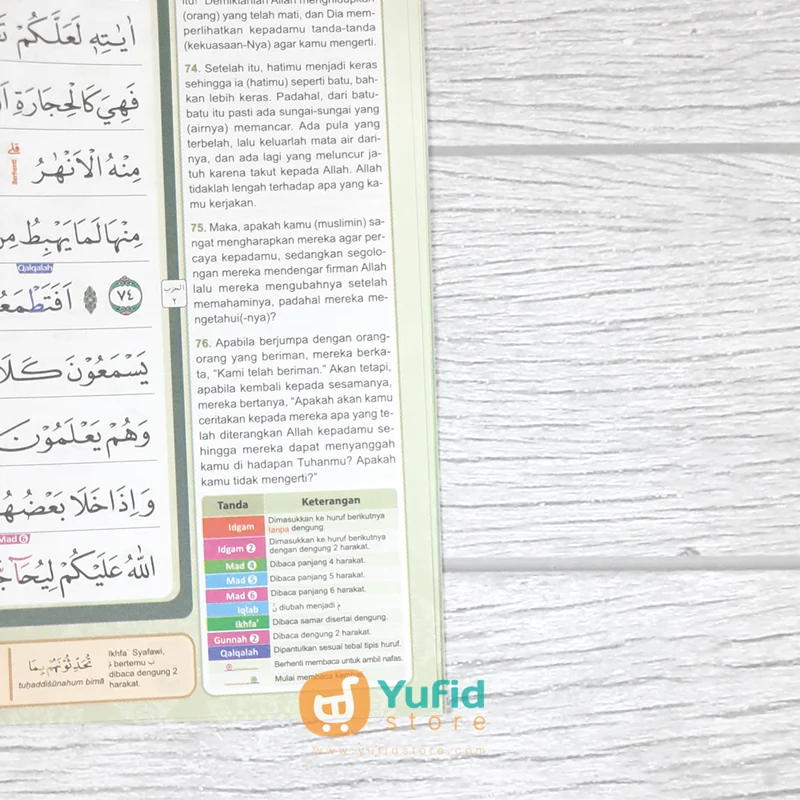 اٰيٰتِهٖ لَعَلَّكُمْ
فَهِيَ كَالْحِجَارَةِ
قلى
Berhenti
مِنْهُ الْاَنْهٰرُ
مِنْهَا لَمَا يَهْبِطُ
Qalqalah
٧٤ اَفَتَطْمَعُ
الحزب
٢
يَسْمَعُوْنَ
وَهُمْ يَعْلَمُوْنَ
وَاِذَا خَلَا بَعْضُهُ
Mad 6
اللّٰهُ عَلَيْكُمْ
تُحَدِّثُوْنَهُمْ بِمَا
tuḥaddiṡūnahum bimā
Ikhfa` Syafawi,
مْ bertemu ب
dibaca dengung 2
harakat.
itu! Demikianlah Allah menghidupkan
(orang) yang telah mati, dan Dia mem-
perlihatkan kepadamu tanda-tanda
(kekuasaan-Nya) agar kamu mengerti.
74. Setelah itu, hatimu menjadi keras
sehingga ia (hatimu) seperti batu, bah-
kan lebih keras. Padahal, dari batu-
batu itu pasti ada sungai-sungai yang
(airnya) memancar. Ada pula yang
terbelah, lalu keluarlah mata air dari-
nya, dan ada lagi yang meluncur ja-
tuh karena takut kepada Allah. Allah
tidaklah lengah terhadap apa yang ka-
mu kerjakan.
75. Maka, apakah kamu (muslimin) sa-
ngat mengharapkan mereka agar per-
caya kepadamu, sedangkan segolo-
ngan mereka mendengar firman Allah
lalu mereka mengubahnya setelah
memahaminya, padahal mereka me-
ngetahui(-nya)?
76. Apabila berjumpa dengan orang-
orang yang beriman, mereka berka-
ta, “Kami telah beriman.” Akan tetapi,
apabila kembali kepada sesamanya,
mereka bertanya, “Apakah akan kamu
ceritakan kepada mereka apa yang te-
lah diterangkan Allah kepadamu se-
hingga mereka dapat menyanggah
kamu di hadapan Tuhanmu? Apakah
kamu tidak mengerti?”
Tanda Keterangan
Idgam Dimasukkan ke huruf berikutnya
tanpa dengung.
Idgam 2 Dimasukkan ke huruf berikutnya
dengan dengung 2 harakat.
Mad 4 Dibaca panjang 4 harakat.
Mad 5 Dibaca panjang 5 harakat.
Mad 6 Dibaca panjang 6 harakat.
Iqlab نْ diubah menjadi م
Ikhfa' Dibaca samar disertai dengung.
Gunnah 2 Dibaca dengung 2 harakat.
Qalqalah Dipantulkan sesuai tebal tipis huruf.
Berhenti membaca untuk ambil nafas.
Mulai membaca kembali.
Yufid
store
www.yufidstore.com